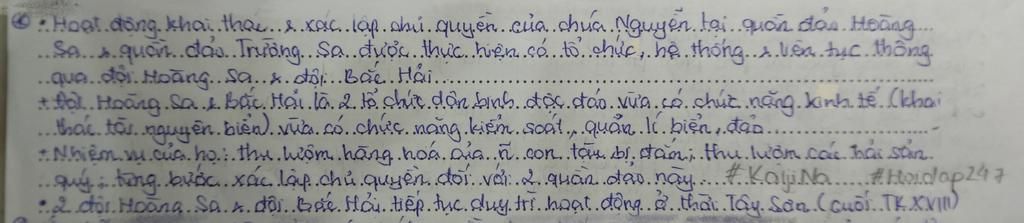 • Hoạt động khai thác & xác lập chủ quyền của chúa Nguyễn tại quần đảo Hoàng
Sa & quần đảo Trường Sa được thực hiện có tổ chức, hệ thống & liên tục thông
qua đội Hoàng Sa & đội Bắc Hải
+ Đội Hoàng Sa & Bắc Hải là 2 tổ chức dân binh độc đáo vừa có chức năng kinh tế (khai
thác tài nguyên biển) vừa có chức năng kiểm soát, quản lí biển, đảo
+ Nhiệm vụ của họ: thu lượm hàng hoá của ñ con tàu bị đắm; thu lượm các hải sản
quý; từng bước xác lập chủ quyền đối với 2 quần đảo này #KaijiNa #Hoidap247
• 2 đội Hoàng Sa & đội Bắc Hải tiếp tục duy trì hoạt động ở thời Tây Sơn (cuối TK XVIII)